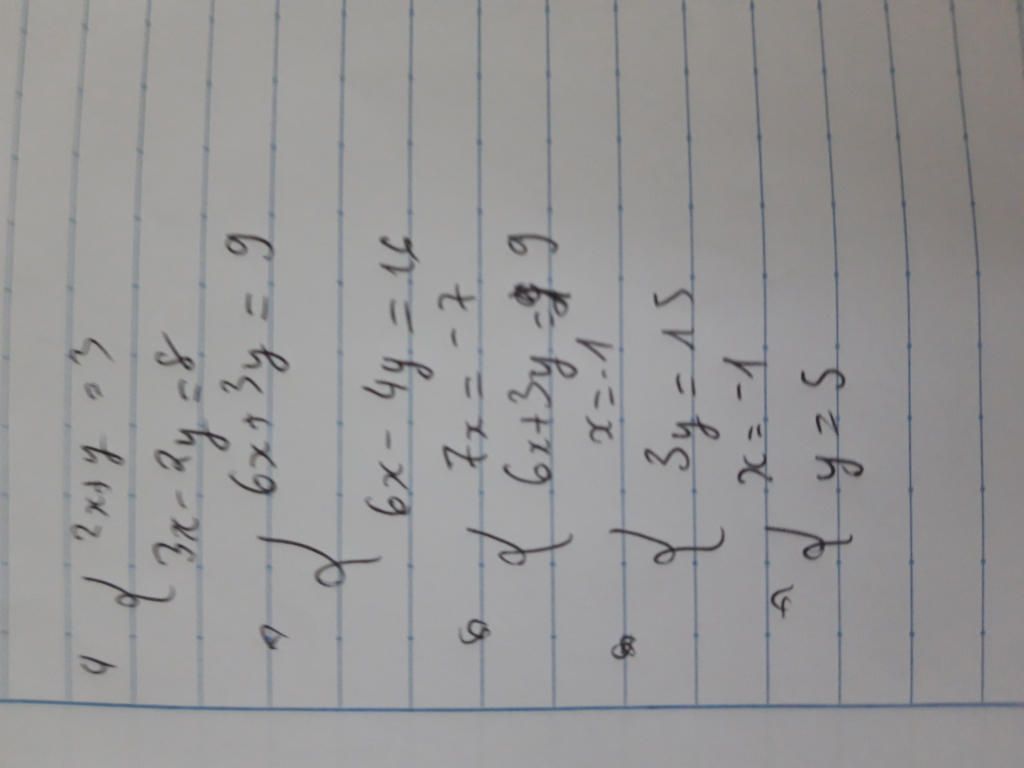 { 2x+y = 3
3x - 2y = 8
{ 6x+3y = 9
6x - 4y = 16
⇔ { 7x = -7
6x+3y = 9
⇔ { x = -1
3y = 15
{ x = -1
y = 5